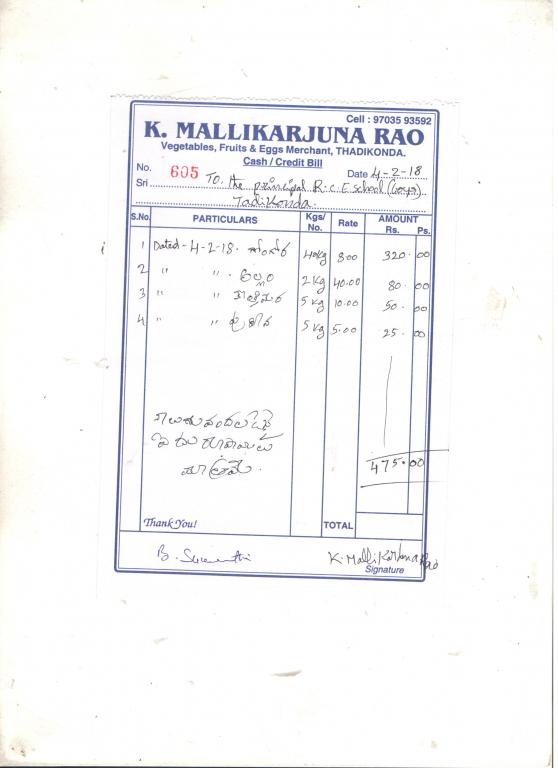 Cell : 97035 93592
K. MALLIKARJUNA RAO
Vegetables, Fruits & Eggs Merchant, THADIKONDA.
Cash / Credit Bill
No. 605 Date 4-2-18
Sri To, the principal R.C.E school (Boys)
Tadikonda.
S.No. PARTICULARS Kgs/No. Rate AMOUNT Rs. Ps.
1 Dated - 4-2-18. 40kg 8.00 320.00
2 " " . అల్లం 2 kg 40.00 80.00
3 " " 5 kg 10.00 50.00
4 " " 5 kg 5.00 25.00
మాత్రమే.
475.00
Thank You!
TOTAL
B. K. Mallikarjuna Rao
Signature